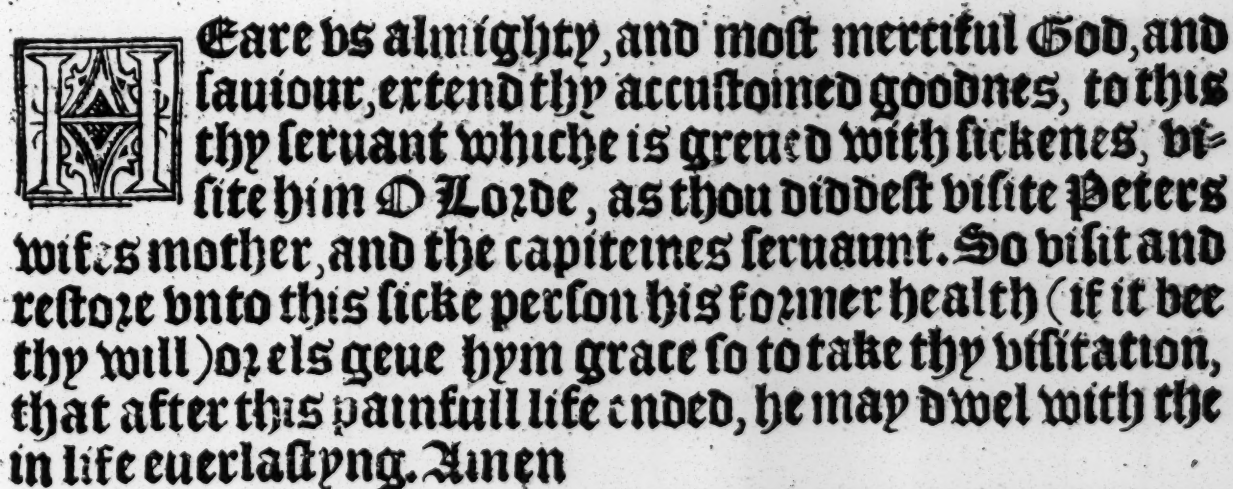 HEare vs almighty, and most merciful God, and
sauiour, extend thy accustomed goodnes, to this
thy seruant whiche is greued with sickenes, vi=
site him O Lorde, as thou diddest visite Peters
wifes mother, and the capiteines seruaunt. So visit and
restore vnto this sicke person his former health (if it bee
thy will) or els geue hym grace so to take thy visitation,
that after this painfull life ended, he may dwel with the
in life euerlastyng. Amen